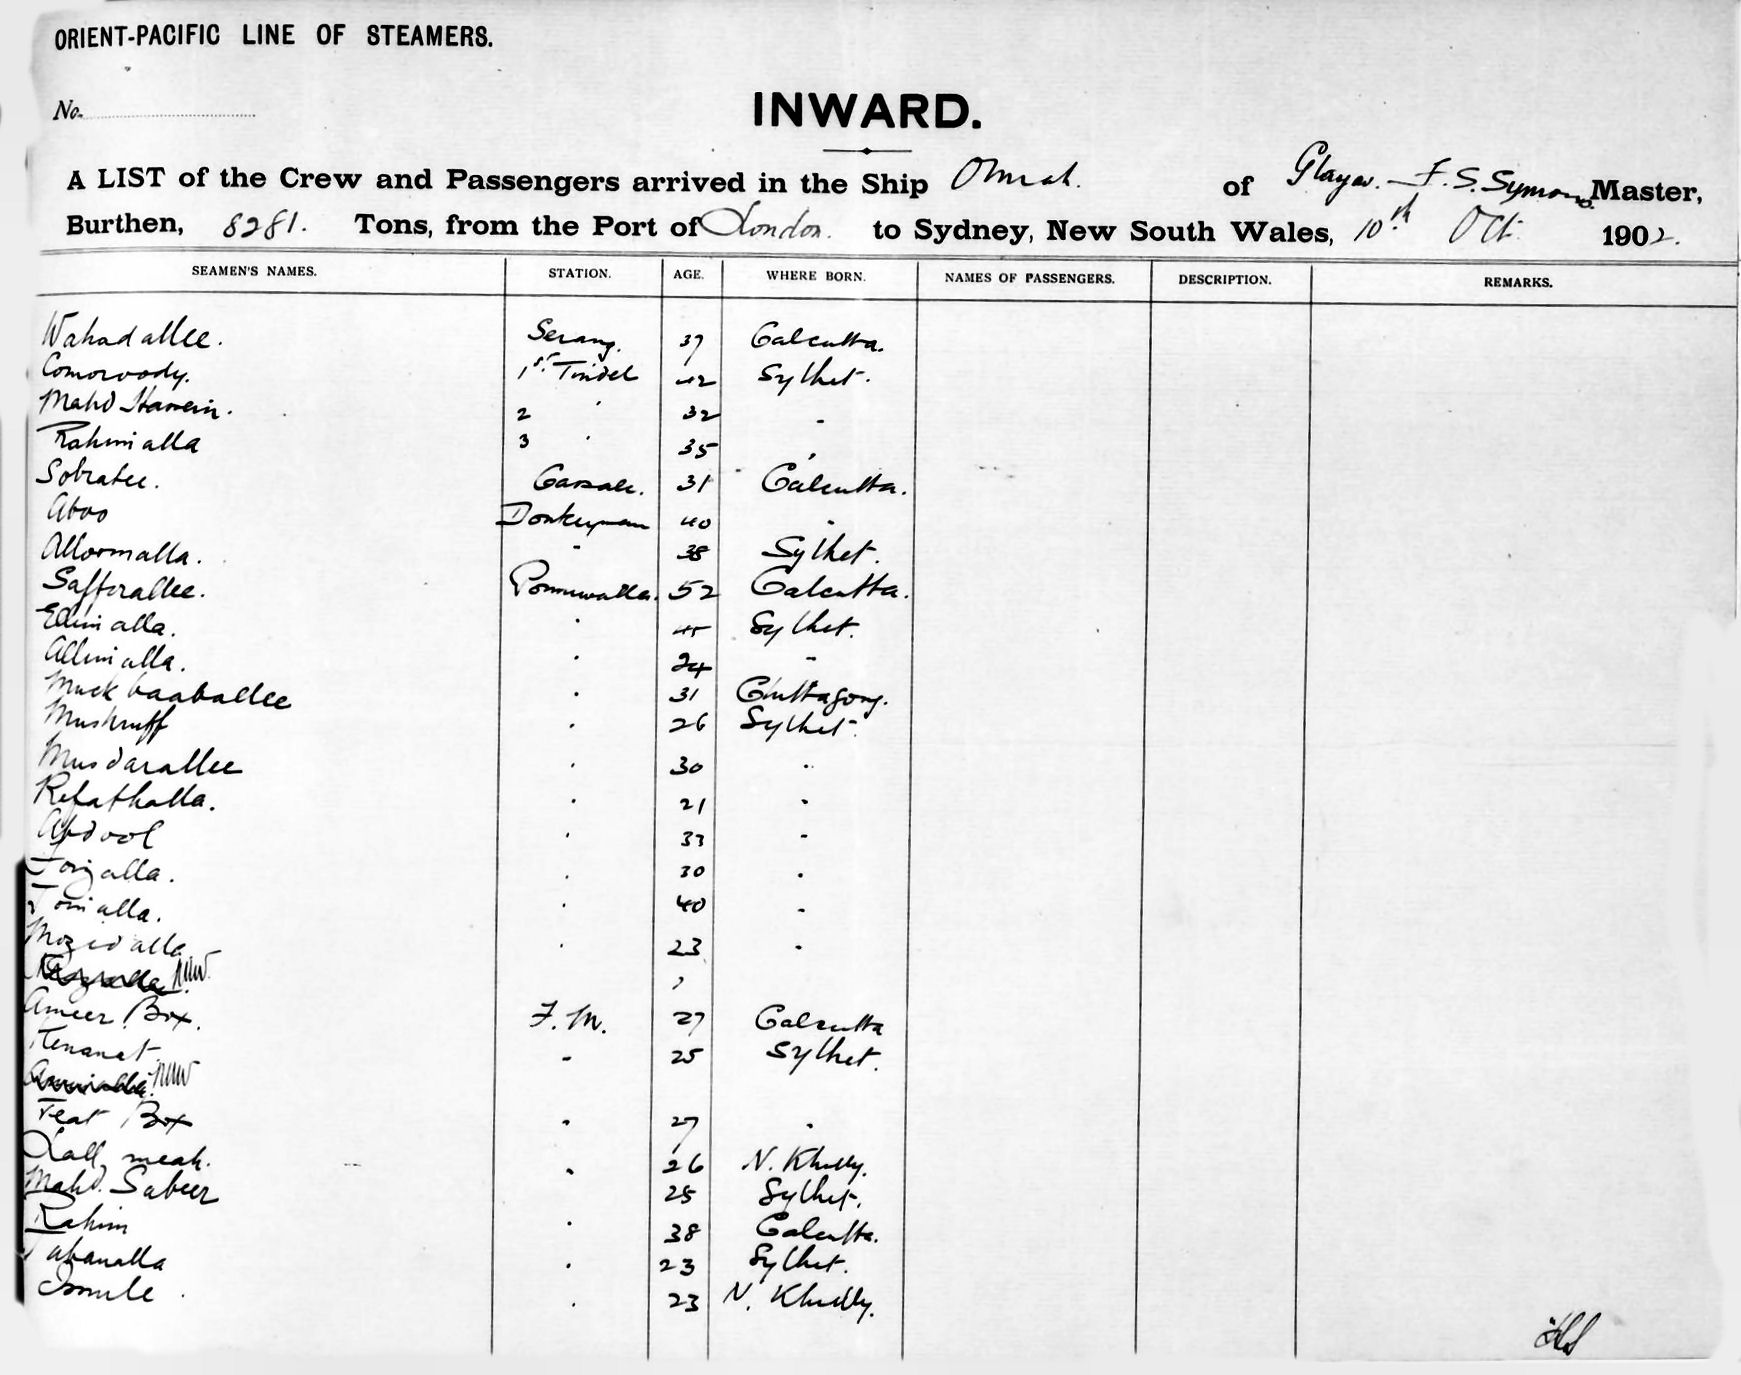 ORIENT-PACIFIC LINE OF STEAMERS.
No.
INWARD.
A LIST of the Crew and Passengers arrived in the Ship Omrah. of Glasgow. — F. S. Symons Master,
Burthen, 8281. Tons, from the Port of London. to Sydney, New South Wales, 10th Oct. 1902.
SEAMEN'S NAMES. STATION. AGE. WHERE BORN. NAMES OF PASSENGERS. DESCRIPTION. REMARKS.
Wahadallee. Serang. 37 Calcutta.
Comoroody. 1st Tindel 42 Sylhet.
Mahd Hassein. 2 " 32 "
Rahimalla 3 " 35 "
Sobratee. Cassab. 31 Calcutta.
Aboo Donkeyman 40 "
Alloormalla. " 38 Sylhet.
Safferallee. 52 Calcutta.
Edimalla. " 45 Sylhet.
Allimalla. " 24 "
Muckbaaballee " 31 Chittagong.
Mushruff " 26 Sylhet.
Musdarallee " 30 "
Refathalla. " 21 "
Abdool " 33 "
Torizalla. " 30 "
" 40 "
Mozidalla " 23 "
Ameer Box. F. M. 27 Calcutta
Kenanat " 25 Sylhet.
Feat Box " 27 "
Lall meah. " 26 N. Khully.
Mahd. Sabeer 25 Sylhet.
Rahim " 38 Calcutta.
" 23 Sylhet.
" 23 N. Khully.